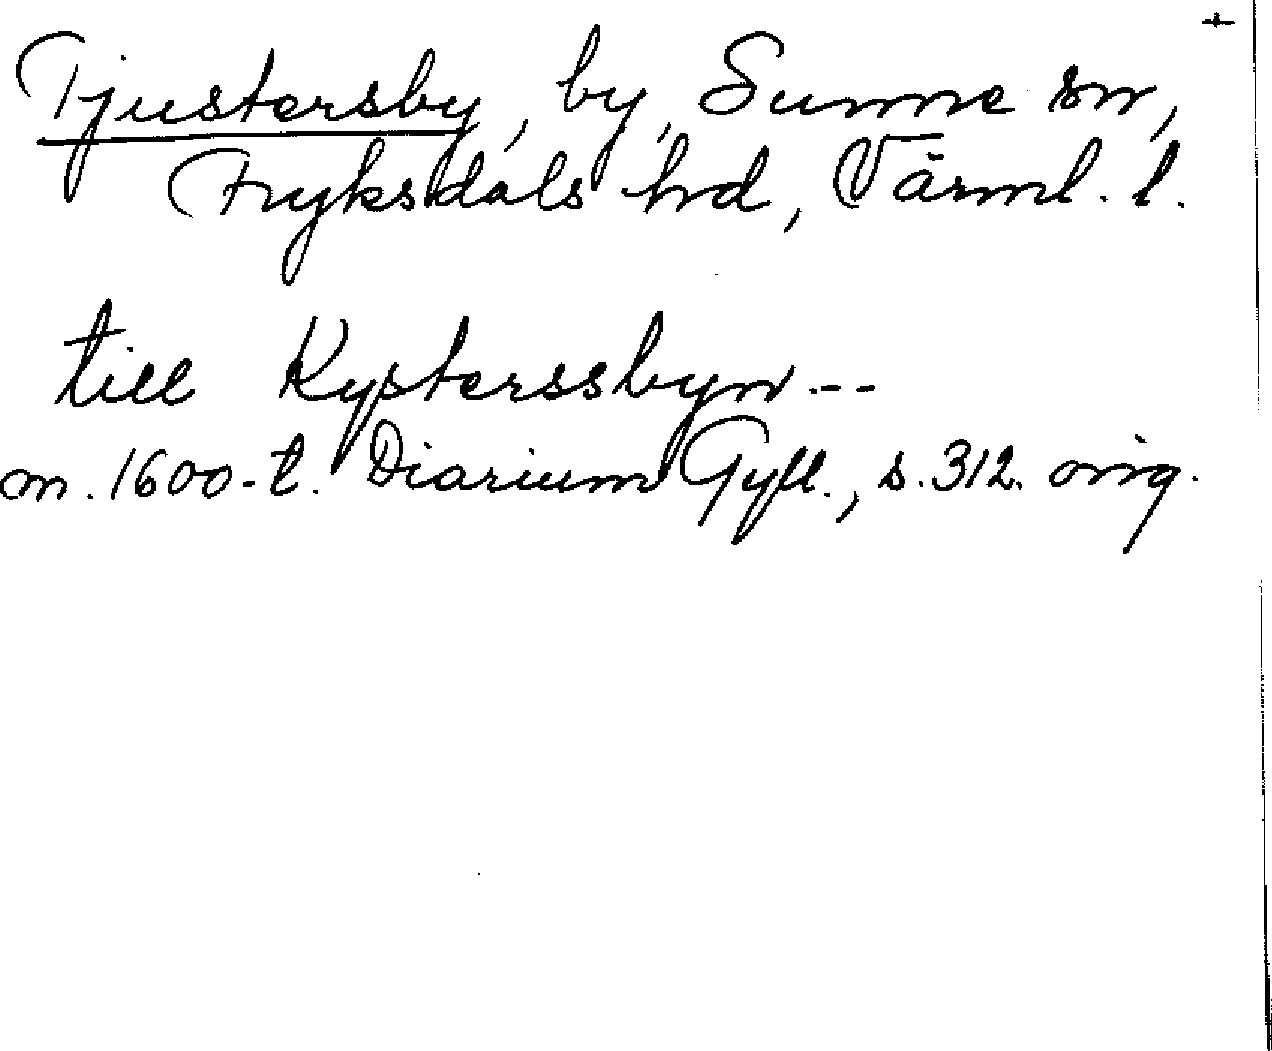 +
Tjustersby, by, Sunne sn,
Fryksdals hd, Värml. l.
till Kysterssbyn.--
m. 1600-t. Diarium Gyll., s. 312. orig.